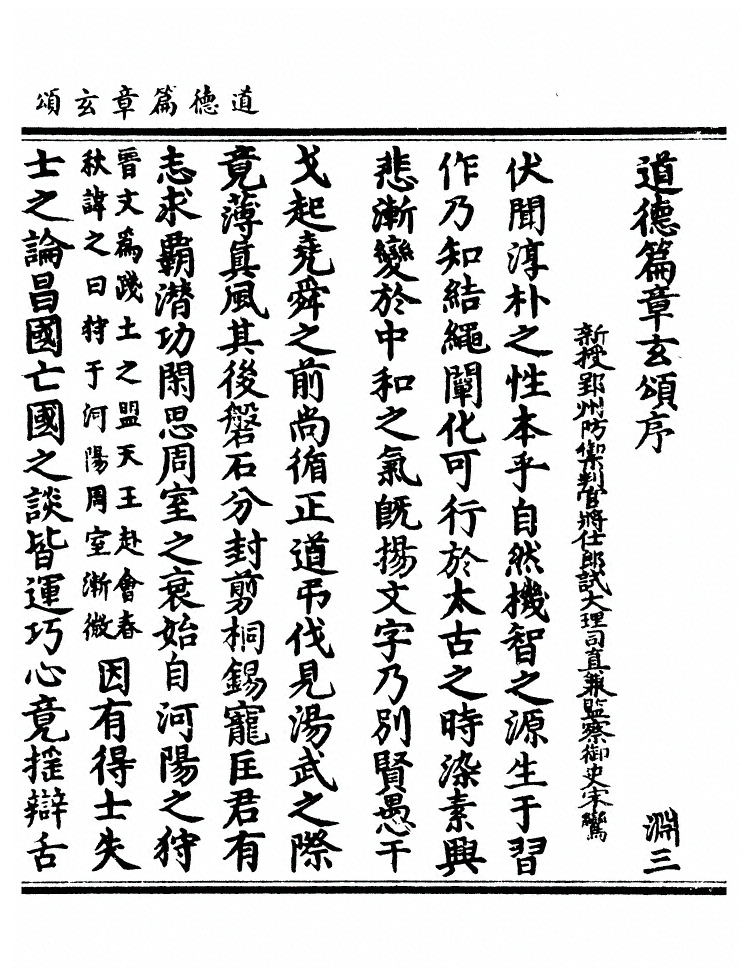 道德篇章玄頌
道德篇章玄頌序
淵三
新授郢州防禦判官將仕郎試大理司直兼監察御史宋鸞
伏聞淳朴之性本乎自然機智之源生于習
作乃知結繩闡化可行於太古之時染素興
悲漸變於中和之氣旣揚文字乃別賢愚干
戈起堯舜之前尚循正道弔伐見湯武之際
竟薄真風其後磐石分封剪桐錫寵匡君有
志求霸潜功閑思周室之衰始自河陽之狩
晉文為踐土之盟天王赴會春
秋諱之曰狩于河陽周室漸微
因有得士失
士之論昌國亡國之談皆運巧心竟搖辯舌